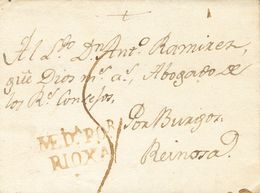 Al Sr. Dn. Anto. Ramirez,
que Dios ms. as. Abogado de
los Rs. Consejos.
Por Burgos
Reinosa.
MEDa. POR
RIOXA